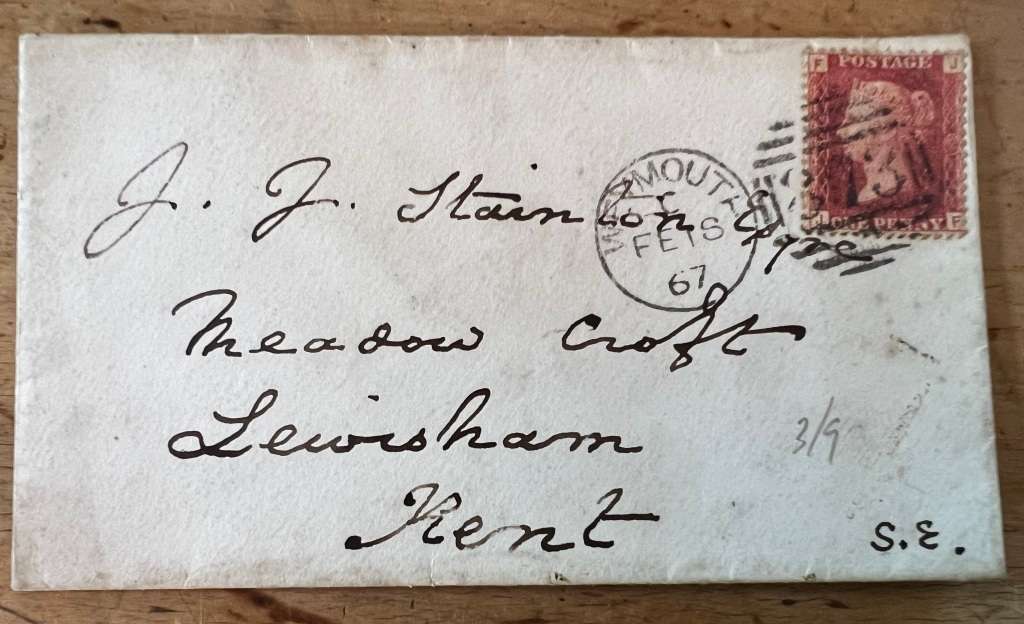 F POSTAGE J
J ONE PENNY F
WEYMOUTH
FE 18
67
J. J. Stainton Esqre
Meadow Croft
Lewisham
Kent
3/9
S.E.